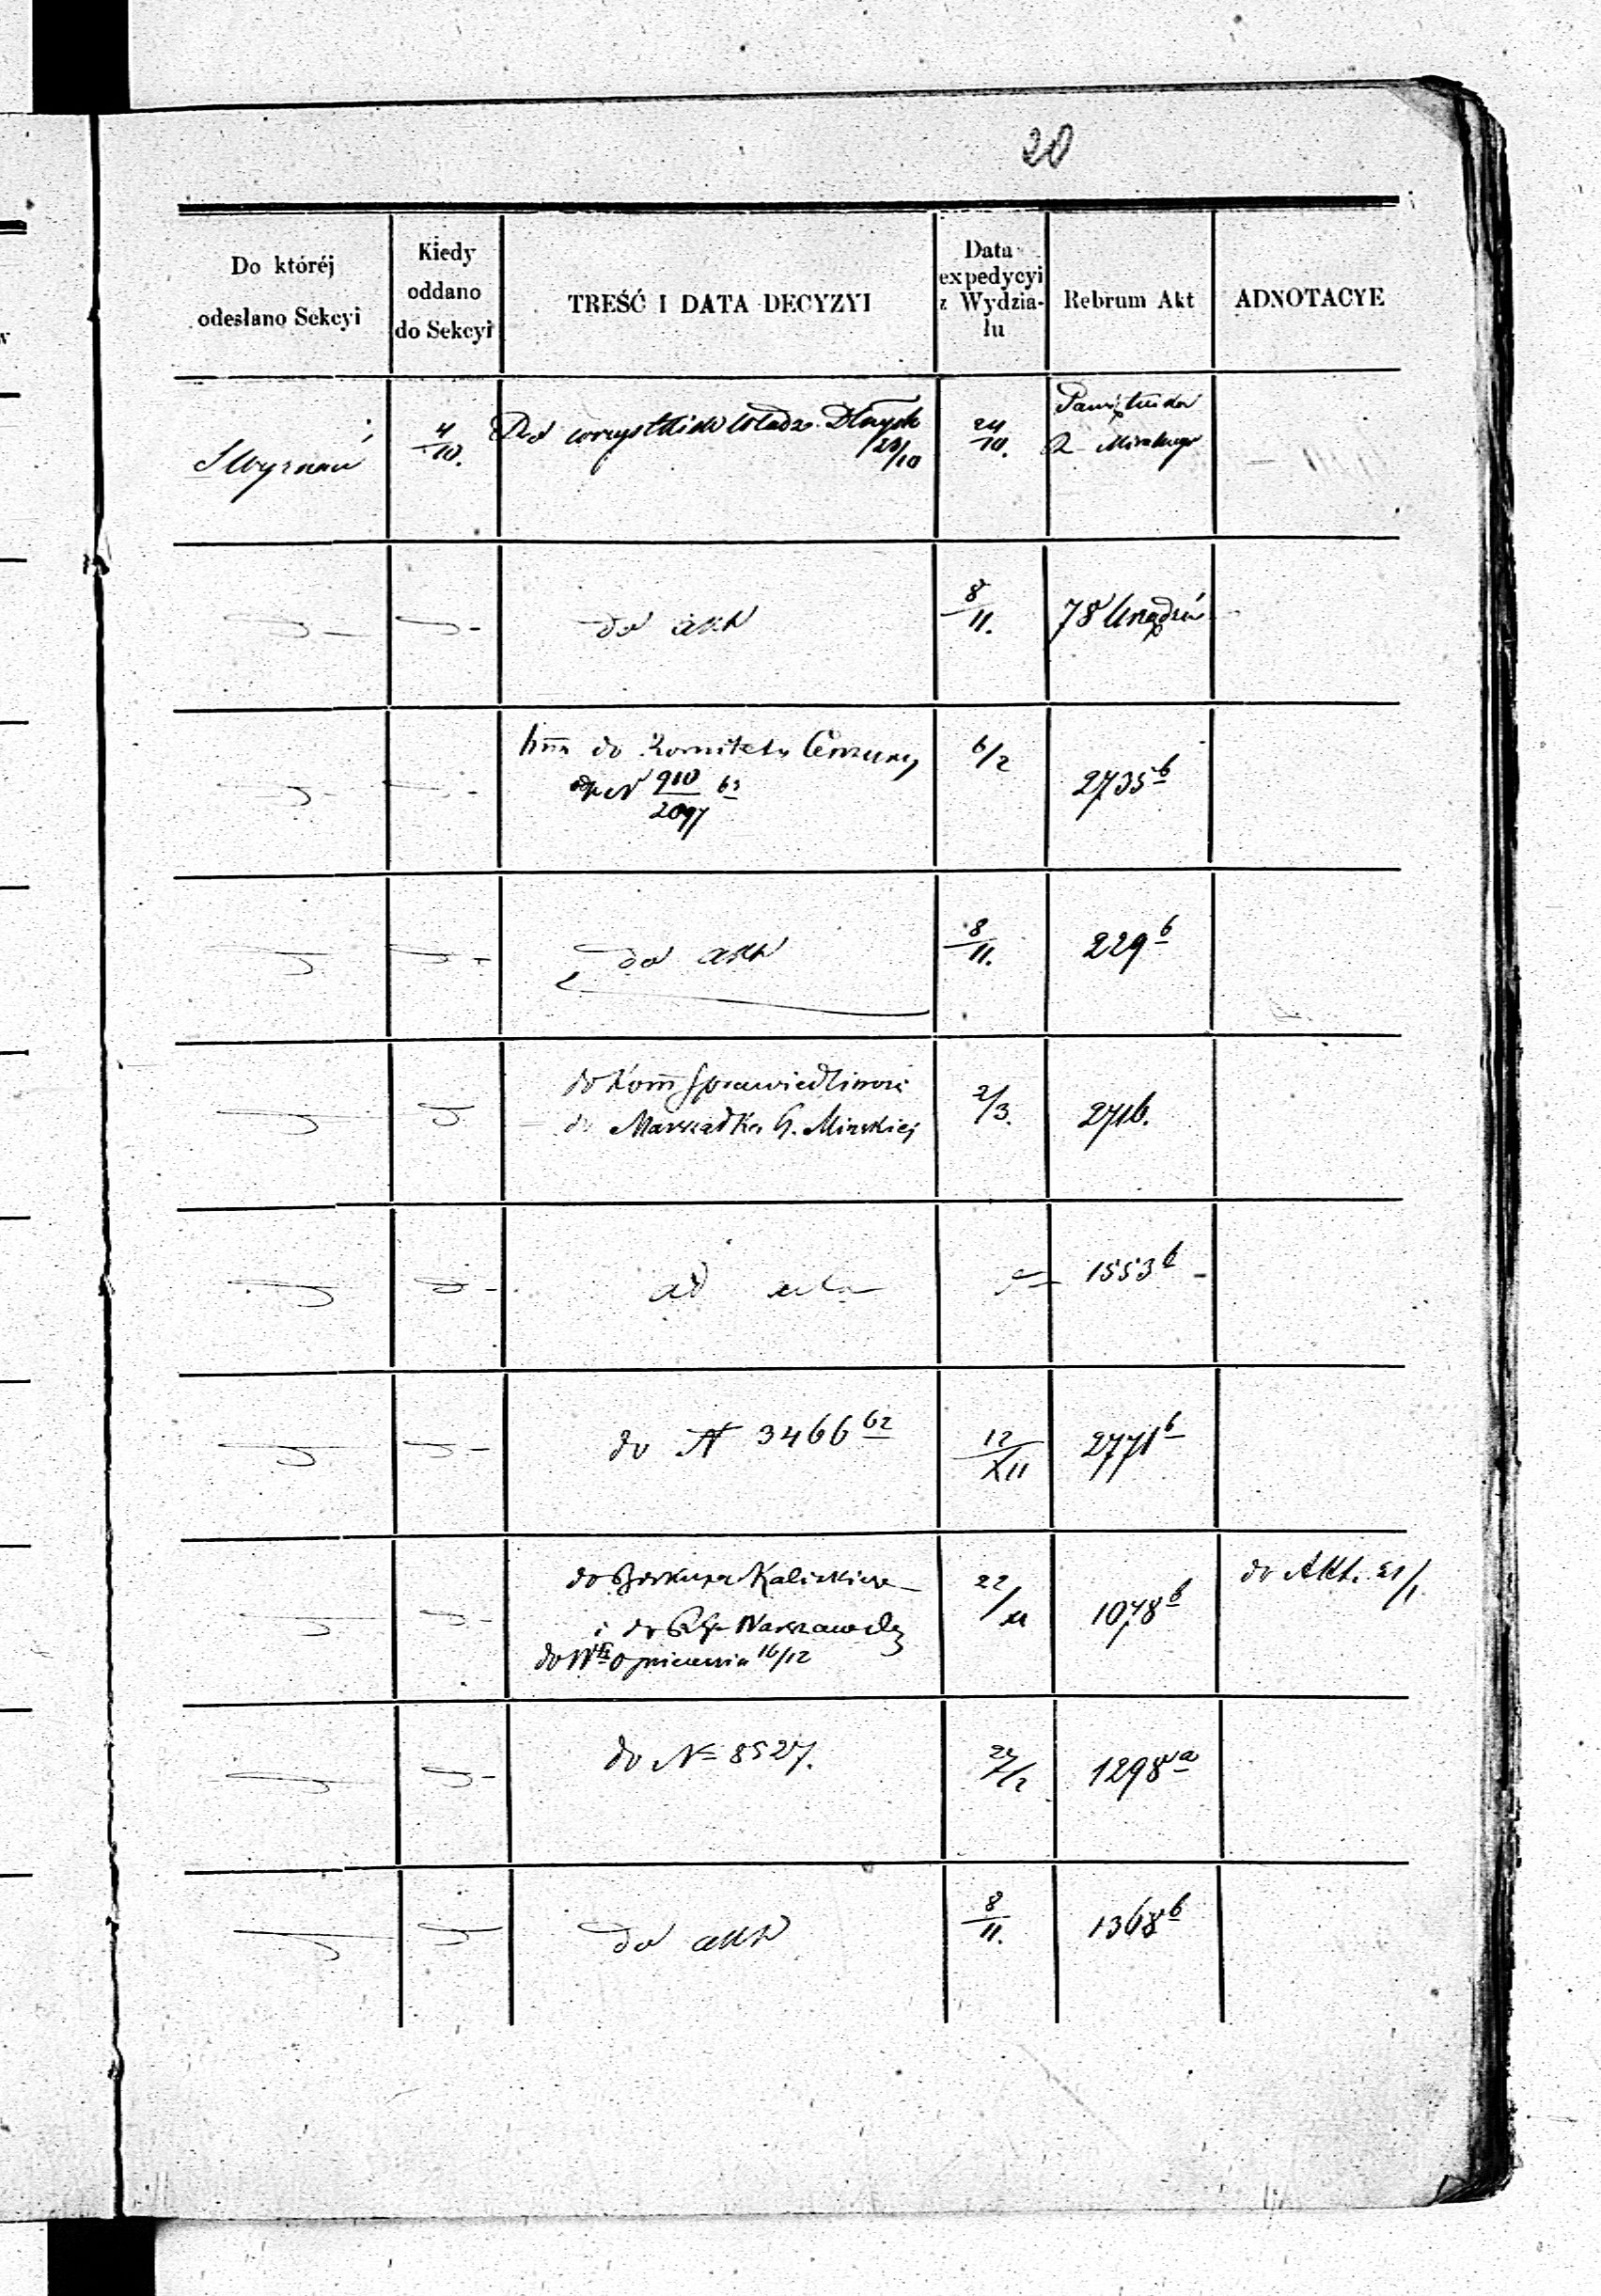 20
Do któréj
odesłano Sekcyi
Kiedy
oddano
do Sekcyi
TREŚĆ I DATA DECYZYI
Data
expedycyi
z Wydzia-
łu
Rebrum Akt
ADNOTACYE
Wyznań
4/10.
Do wszystkich Władz
23/10
24/10.
do akt
8/11.
78
do Komitetu Cenzury
910/2097
6/2
2735 b
do akt
8/11.
229 b
do Kom Sprawiedliwości
do Marszałka G. Mińskiej
2/3.
271b.
ad acta
1553 b
do N 3466 62
12/XII
2771 b
do Biskupa Kaliskiego
i do Warszawskiej
16/12
22/11
1078 b
do Akt. 21/1
do N 8527.
27/2
1298 a
do akt
8/11.
1368 b